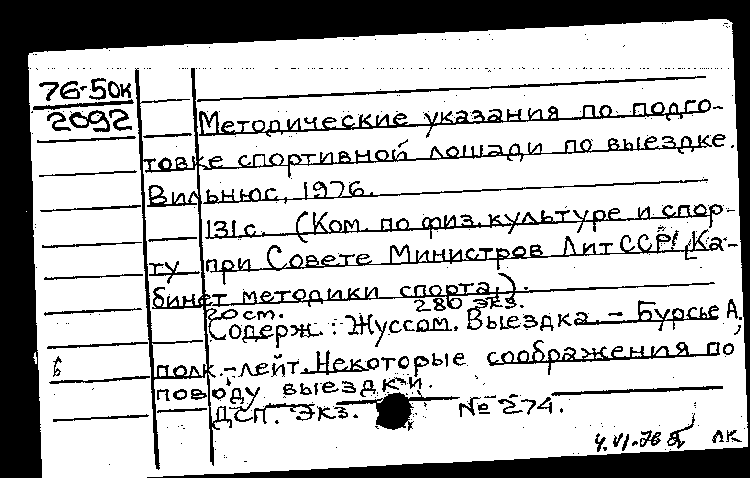 76-50к
2092
Методические указания по подго-
товке спортивной лошади по выездке.
Вильнюс, 1976.
131 с. (Ком. по физ. культуре и спор-
ту при Совете Министров Лит ССР. Ка-
бинет методики спорта.).
20 ст. 280 экз.
Содерж.: Жуссом. Выездка. - Бурсье А.,
полк.-лейт. Некоторые соображения по
поводу выездки.
ДСП. Экз. № 274.
4.VI.76 лк